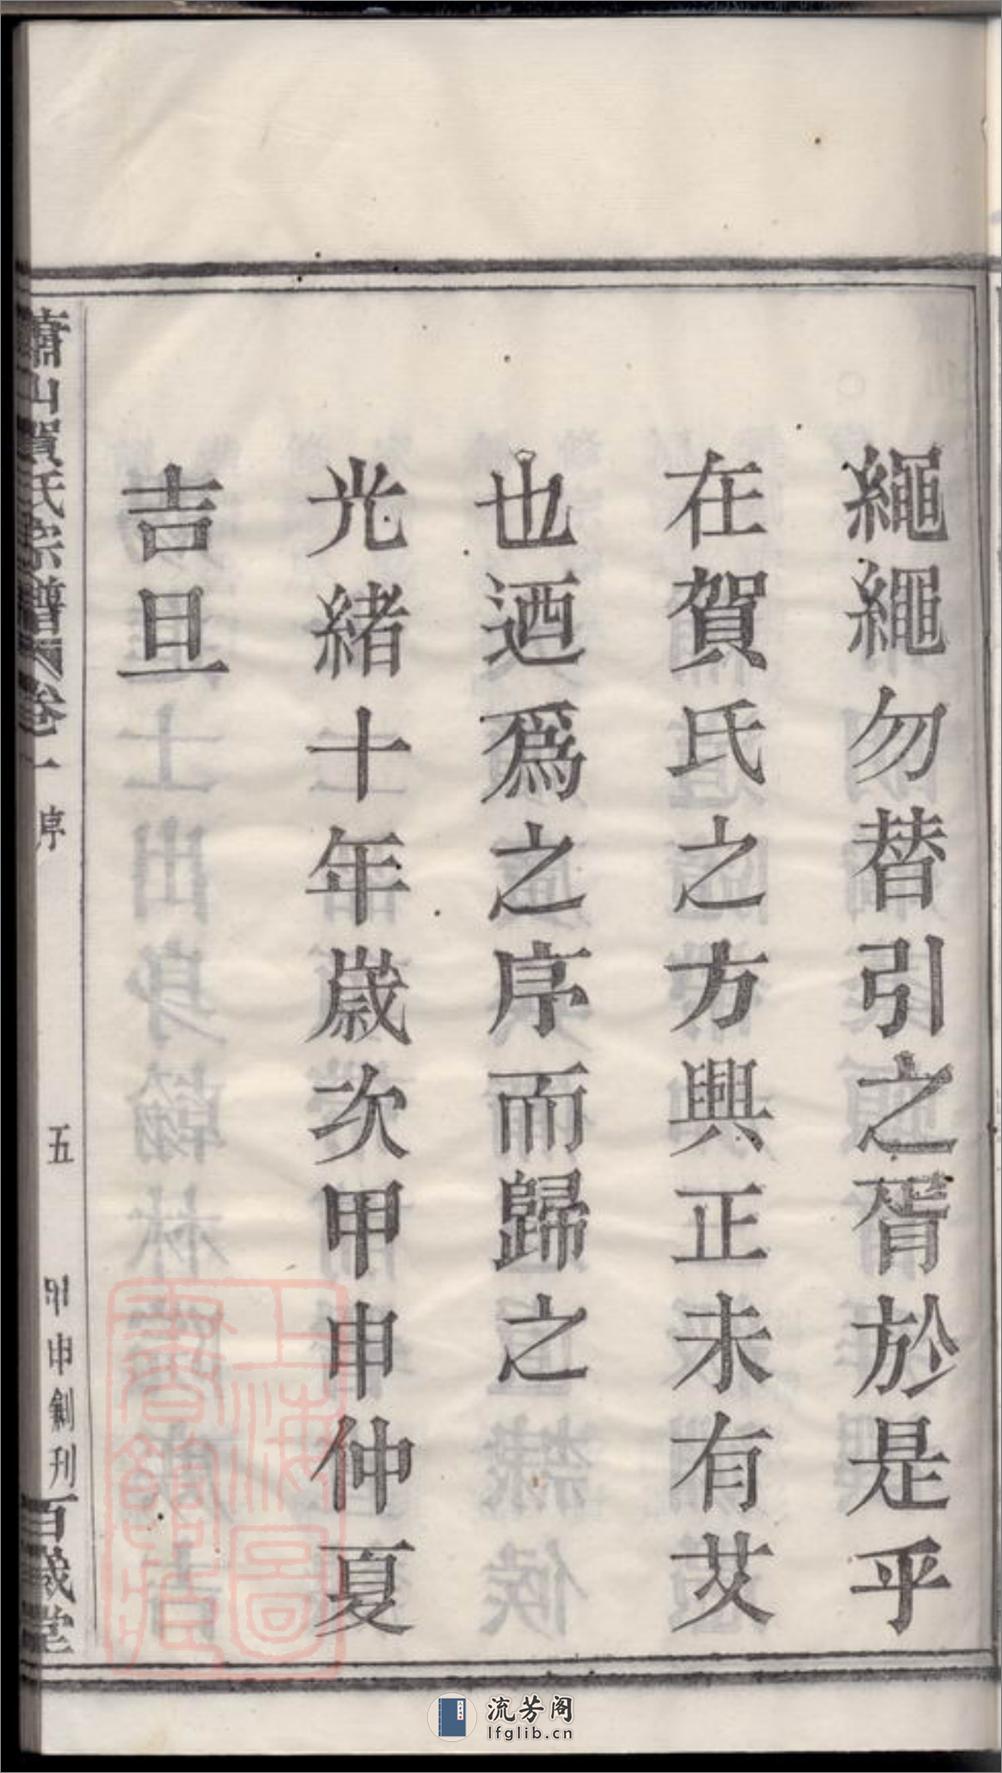 繩繩勿替引之胥於是乎
在賀氏之方興正未有艾
也迺爲之序而歸之
光緒十年歲次甲申仲夏
吉旦
蕭山賀氏宗譜 卷一 序 五 甲申創刊 百歲堂
上海圖書館藏
流芳阁
lfglib.cn